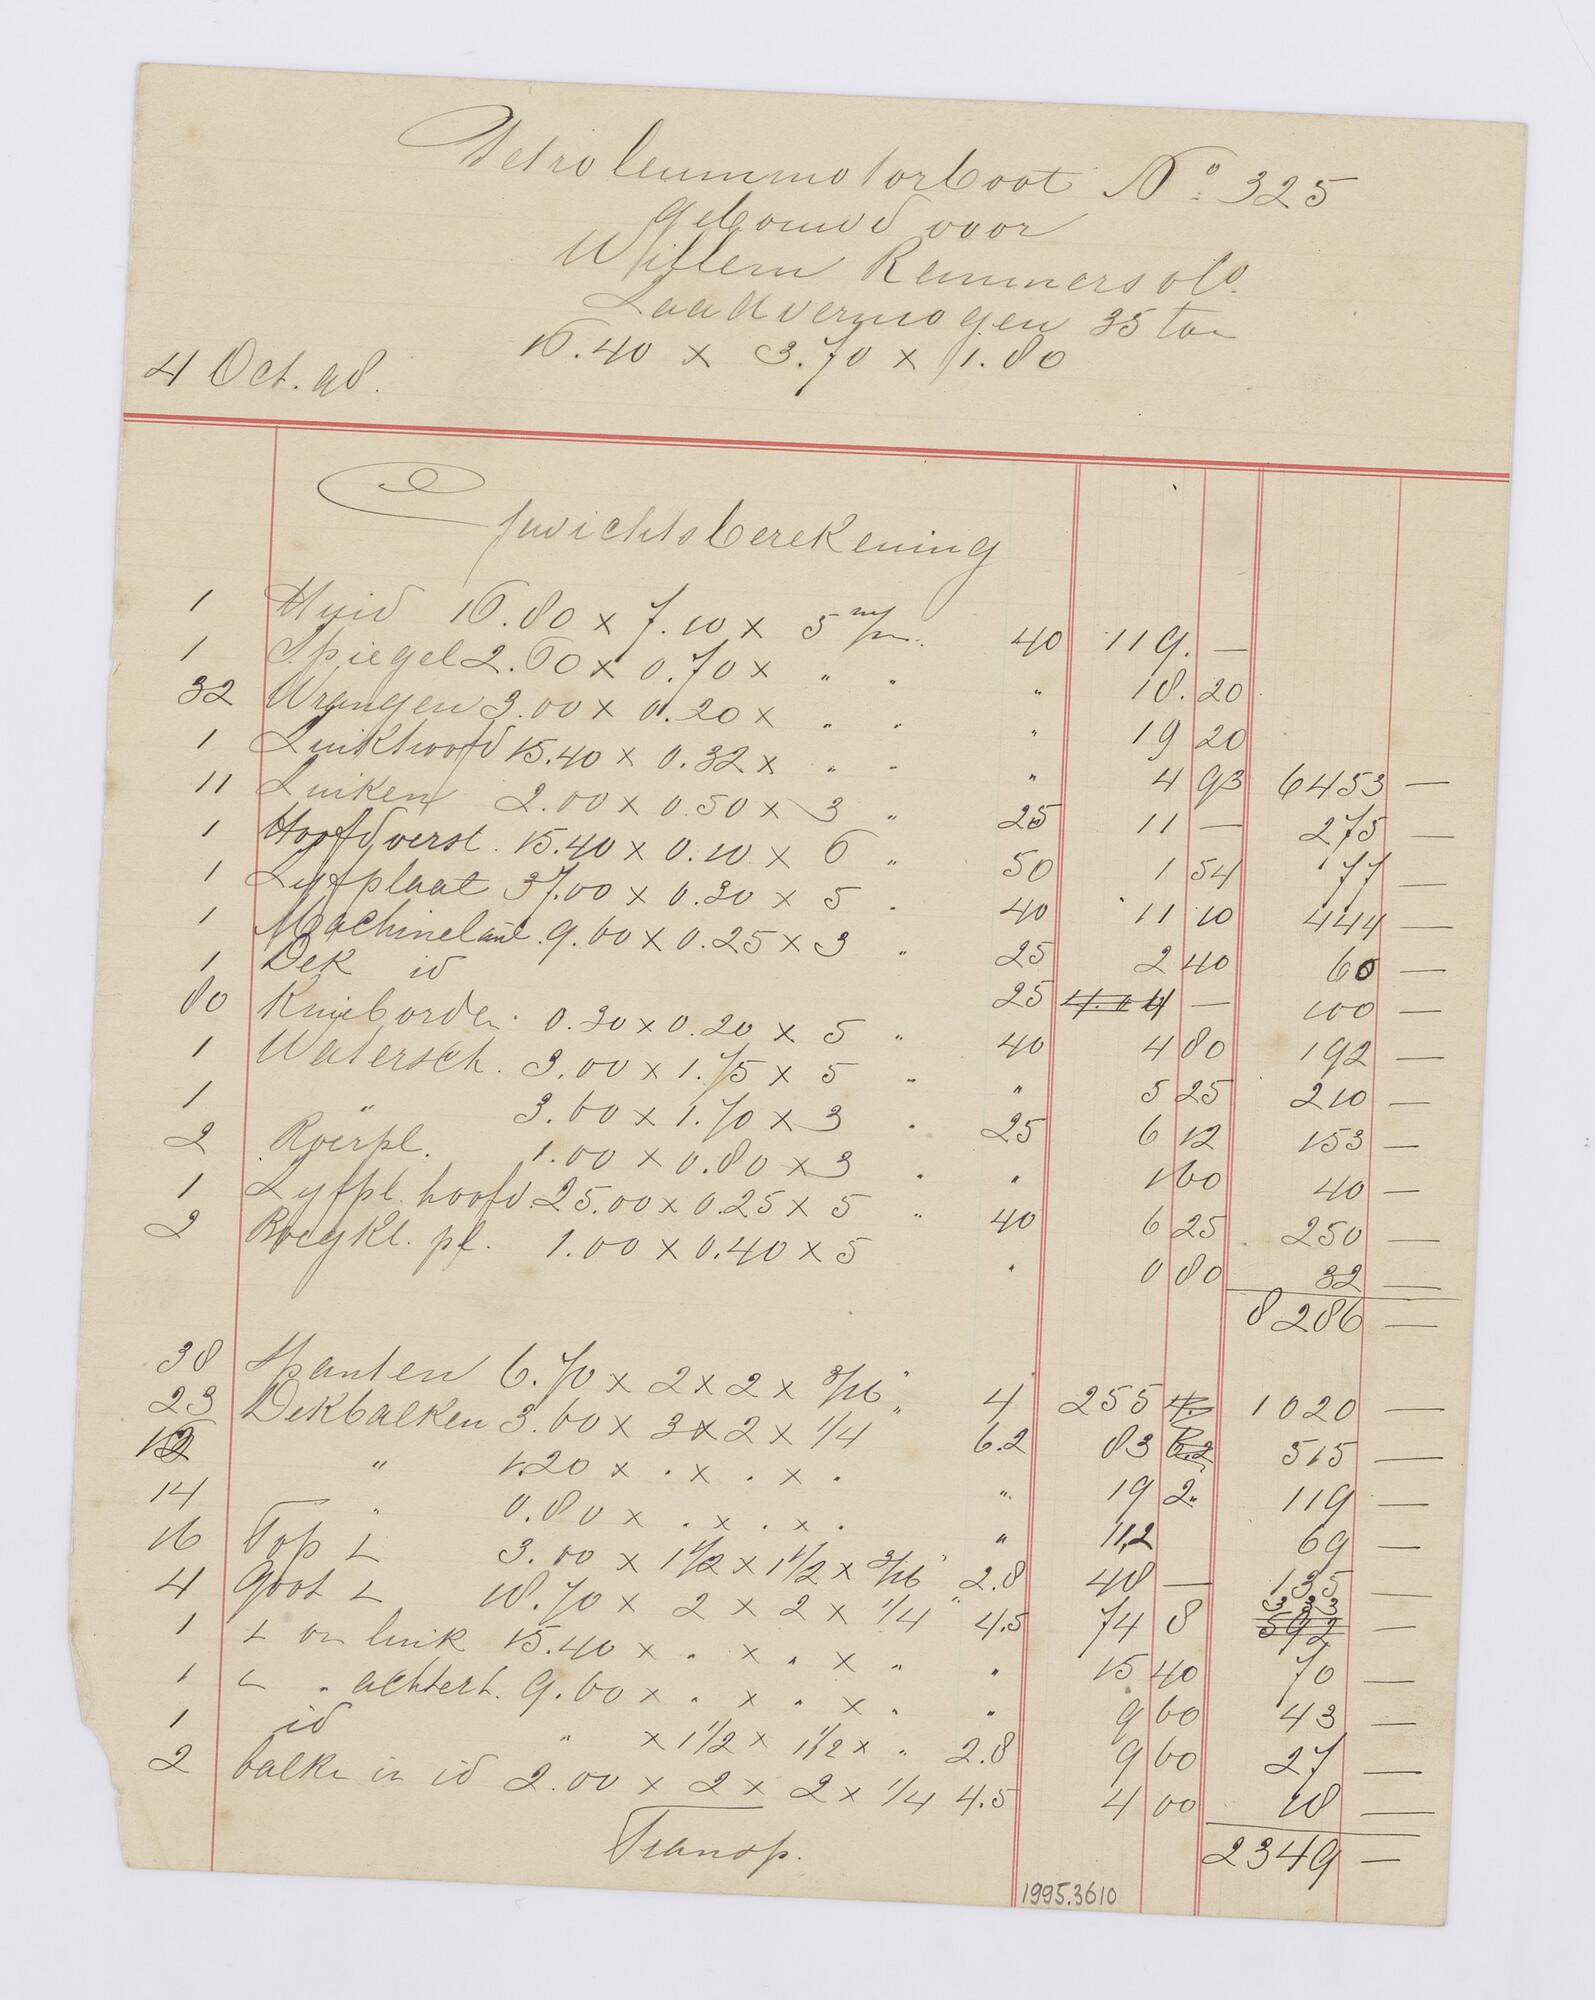 Petroleummotorboot No 325
gebouwd voor
Willem Remmers
Laadvermogen 35 ton
16.40 x 3.70 x 1.80
4 Oct. 98.
Gewichtsberekening
1 Huid 16.80 x 7.10 x 5 m/m. 40 119. —
1 Spiegel 2.60 x 0.70 x " " " 18. 20
32 Wrangen 3.00 x 0.20 x " " " 19 20
1 Luikhoofd 15.40 x 0.32 x " " " 4 93 6453 —
11 Luiken 2.00 x 0.50 x 3 " 25 11 — 275 —
1 Hoofdverst. 15.40 x 0.10 x 6 " 50 1 54 77 —
1 Lyfplaat 37.00 x 0.30 x 5 " 40 11 10 444 —
1 9.60 x 0.25 x 3 " 25 2 40 60 —
1 Dek id 25 — 100 —
80 Knieborden. 0.30 x 0.20 x 5 " 40 4 80 192 —
1 Watersch. 3.00 x 1.75 x 5 " " 5 25 210 —
1 " 3.60 x 1.70 x 3 " 25 6 12 153 —
2 Roerpl. 1.00 x 0.80 x 3 " " 1 60 40 —
1 Lyfpl. hoofd. 25.00 x 0.25 x 5 " 40 6 25 250 —
2 Boegkl. pl. 1.00 x 0.40 x 5 " 0 80 32 —
8286 —
38 Spanten 6.70 x 2 x 2 x 3/16" 4 255 1020 —
23 Dekbalken 3.60 x 3 x 2 x 1/4 " 6.2 83 515 —
" 1.20 x . x . x . " 19 2 119 —
14 " 0.80 x . x . x . " 11,2 69 —
16 Top L 3.00 x 1 1/2 x 1 1/2 x 3/16" 2.8 48 — 135 —
4 Goot L 18.70 x 2 x 2 x 1/4 " 4.5 74 8 333 —
1 L on luik 15.40 x " x " x " " 15 40 70 —
1 L " achtert. 9.60 x " x " x " " 9 60 43 —
1 id " x 1 1/2 x 1 1/2 x " 2.8 9 60 27 —
2 balken in id 2.00 x 2 x 2 x 1/4 4.5 4 00 18 —
Transp. 2349 —
1995.3610